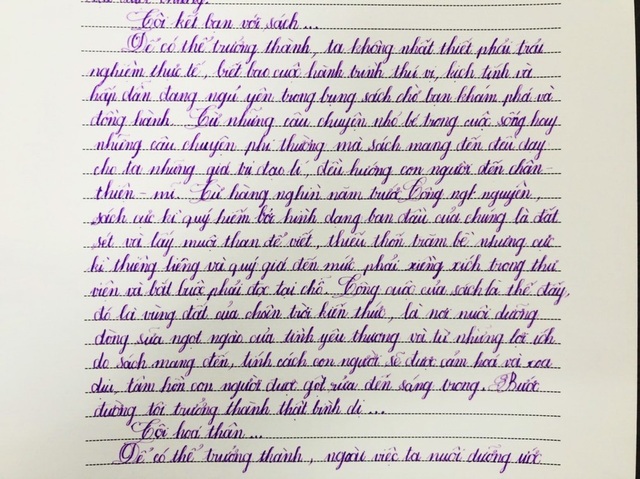 Tôi kết bạn với sách...
Để có thể trưởng thành, ta không nhất thiết phải trải
nghiệm thực tế, biết bao cuộc hành trình thú vị, kịch tính và
hấp dẫn đang ngủ yên trong trang sách chờ bạn khám phá và
đồng hành. Từ những câu chuyện nhỏ bé trong cuộc sống hay
những câu chuyện phi thường mà sách mang đến đều dạy
cho ta những giá trị đạo lí, đều hướng con người đến chân-
thiện-mĩ. Từ hàng nghìn năm trước Công ngt nguyên,
sách cực kì quý hiếm bởi hình dạng ban đầu của chúng là đất
sét và lấy muội than để viết, thiếu thốn trăm bề nhưng cực
kì thiêng liêng và quý giá đến mức phải xiềng xích trong thư
viện và bắt buộc phải đọc tại chỗ. Công cuộc của sách là thế đấy,
đó là vùng đất của chân trời kiến thức, là nơi nuôi dưỡng
dòng sữa ngọt ngào của tình yêu thương và từ những lợi ích
do sách mang đến, tính cách con người sẽ được cảm hoá và xoa
dịu, tâm hồn con người được gột rửa đến sáng trong. Bước
đường tôi trưởng thành thật bình dị...
Tôi hoá thân...
Để có thể trưởng thành, ngoài việc ta nuôi dưỡng ước